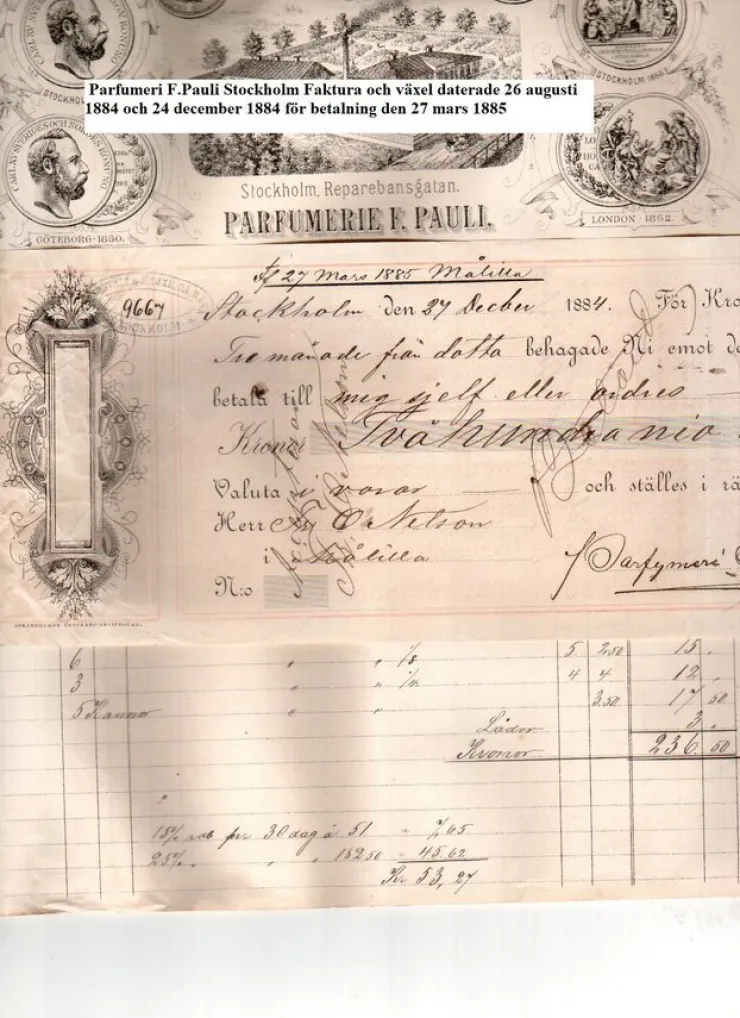 CARL XV SVERIGES OCH NORGES KONUNG
STOCKHOLM
STOCKHOLM 1866.
Parfumeri F.Pauli Stockholm Faktura och växel daterade 26 augusti
1884 och 24 december 1884 för betalning den 27 mars 1885
CARL XV SVERIGES OCH NORGES KONUNG
GÖTEBORG-1860.
LONDON 1862.
Stockholm, Reparebansgatan.
PARFUMERIE F. PAULI.
27 Mars 1885 Målilla
9667
STOCKHOLM
Stockholm den 27 Decber 1884. För Kro
Tre månade från datta behagade Ni emot de
betala till mig sjelf eller ordres
Kronor Tvåhundranio
Valuta i varor och ställes i rä
Herr Fr O Nelson
i Målilla
Parfymeri
N:o
6 " " 1/8 5 2,50 15 .
3 " " 1/4 4 4 12 .
5 Kannor " " 3.50 17 50
Lådor 3 .
Kronor 236 50
15% rab per 30 dag à 51 = 7,65
25% " " " 182 50 = 45.62
Kr 53,27